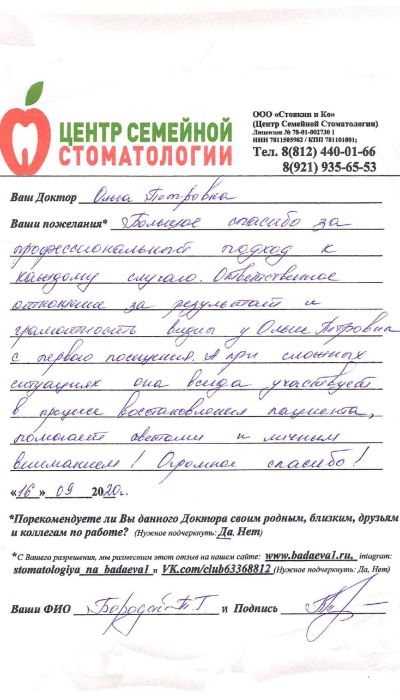 ЦЕНТР СЕМЕЙНОЙ
СТОМАТОЛОГИИ
ООО «Стоякин и Ко»
(Центр Семейной Стоматологии)
Лицензия № 78-01-002730 1
ИНН 7811505982 / КПП 781101001;
Тел. 8(812) 440-01-66
8(921) 935-65-53
Ваш Доктор Ольга Петровна
Ваши пожелания* Большое спасибо за
профессиональный подход к
каждому случаю. Ответственное
отношение за результат и
грамотность видны у Ольги Петровны
с первого посещения. А при сложных
ситуациях она всегда участвует
в процессе востановления пациента,
помогает советами и личным
вниманием! Огромное спасибо!
«16» 09 2020г.
*Порекомендуете ли Вы данного Доктора своим родным, близким, друзьям
и коллегам по работе? (Нужное подчеркнуть: Да, Нет)
*С Вашего разрешения, мы разместим этот отзыв на нашем сайте: www.badaeva1.ru, intagram:
stomatologiya_na_badaeva1 и VK.com/club63368812 (Нужное подчеркнуть: Да, Нет)
Ваши ФИО Бородай Т.Г и Подпись